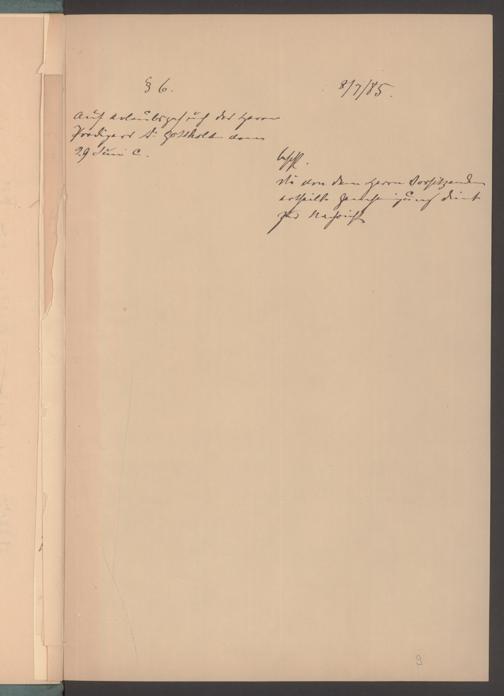 § 6.
8/7/85.
Auf Urlaubsgesuch des Herrn
Predigers Dr. Gottheil vom
29 Juni c.
beschl.
die von dem Herrn Vorsitzenden
ertheilte Genehmigung dient
zur Nachricht
9